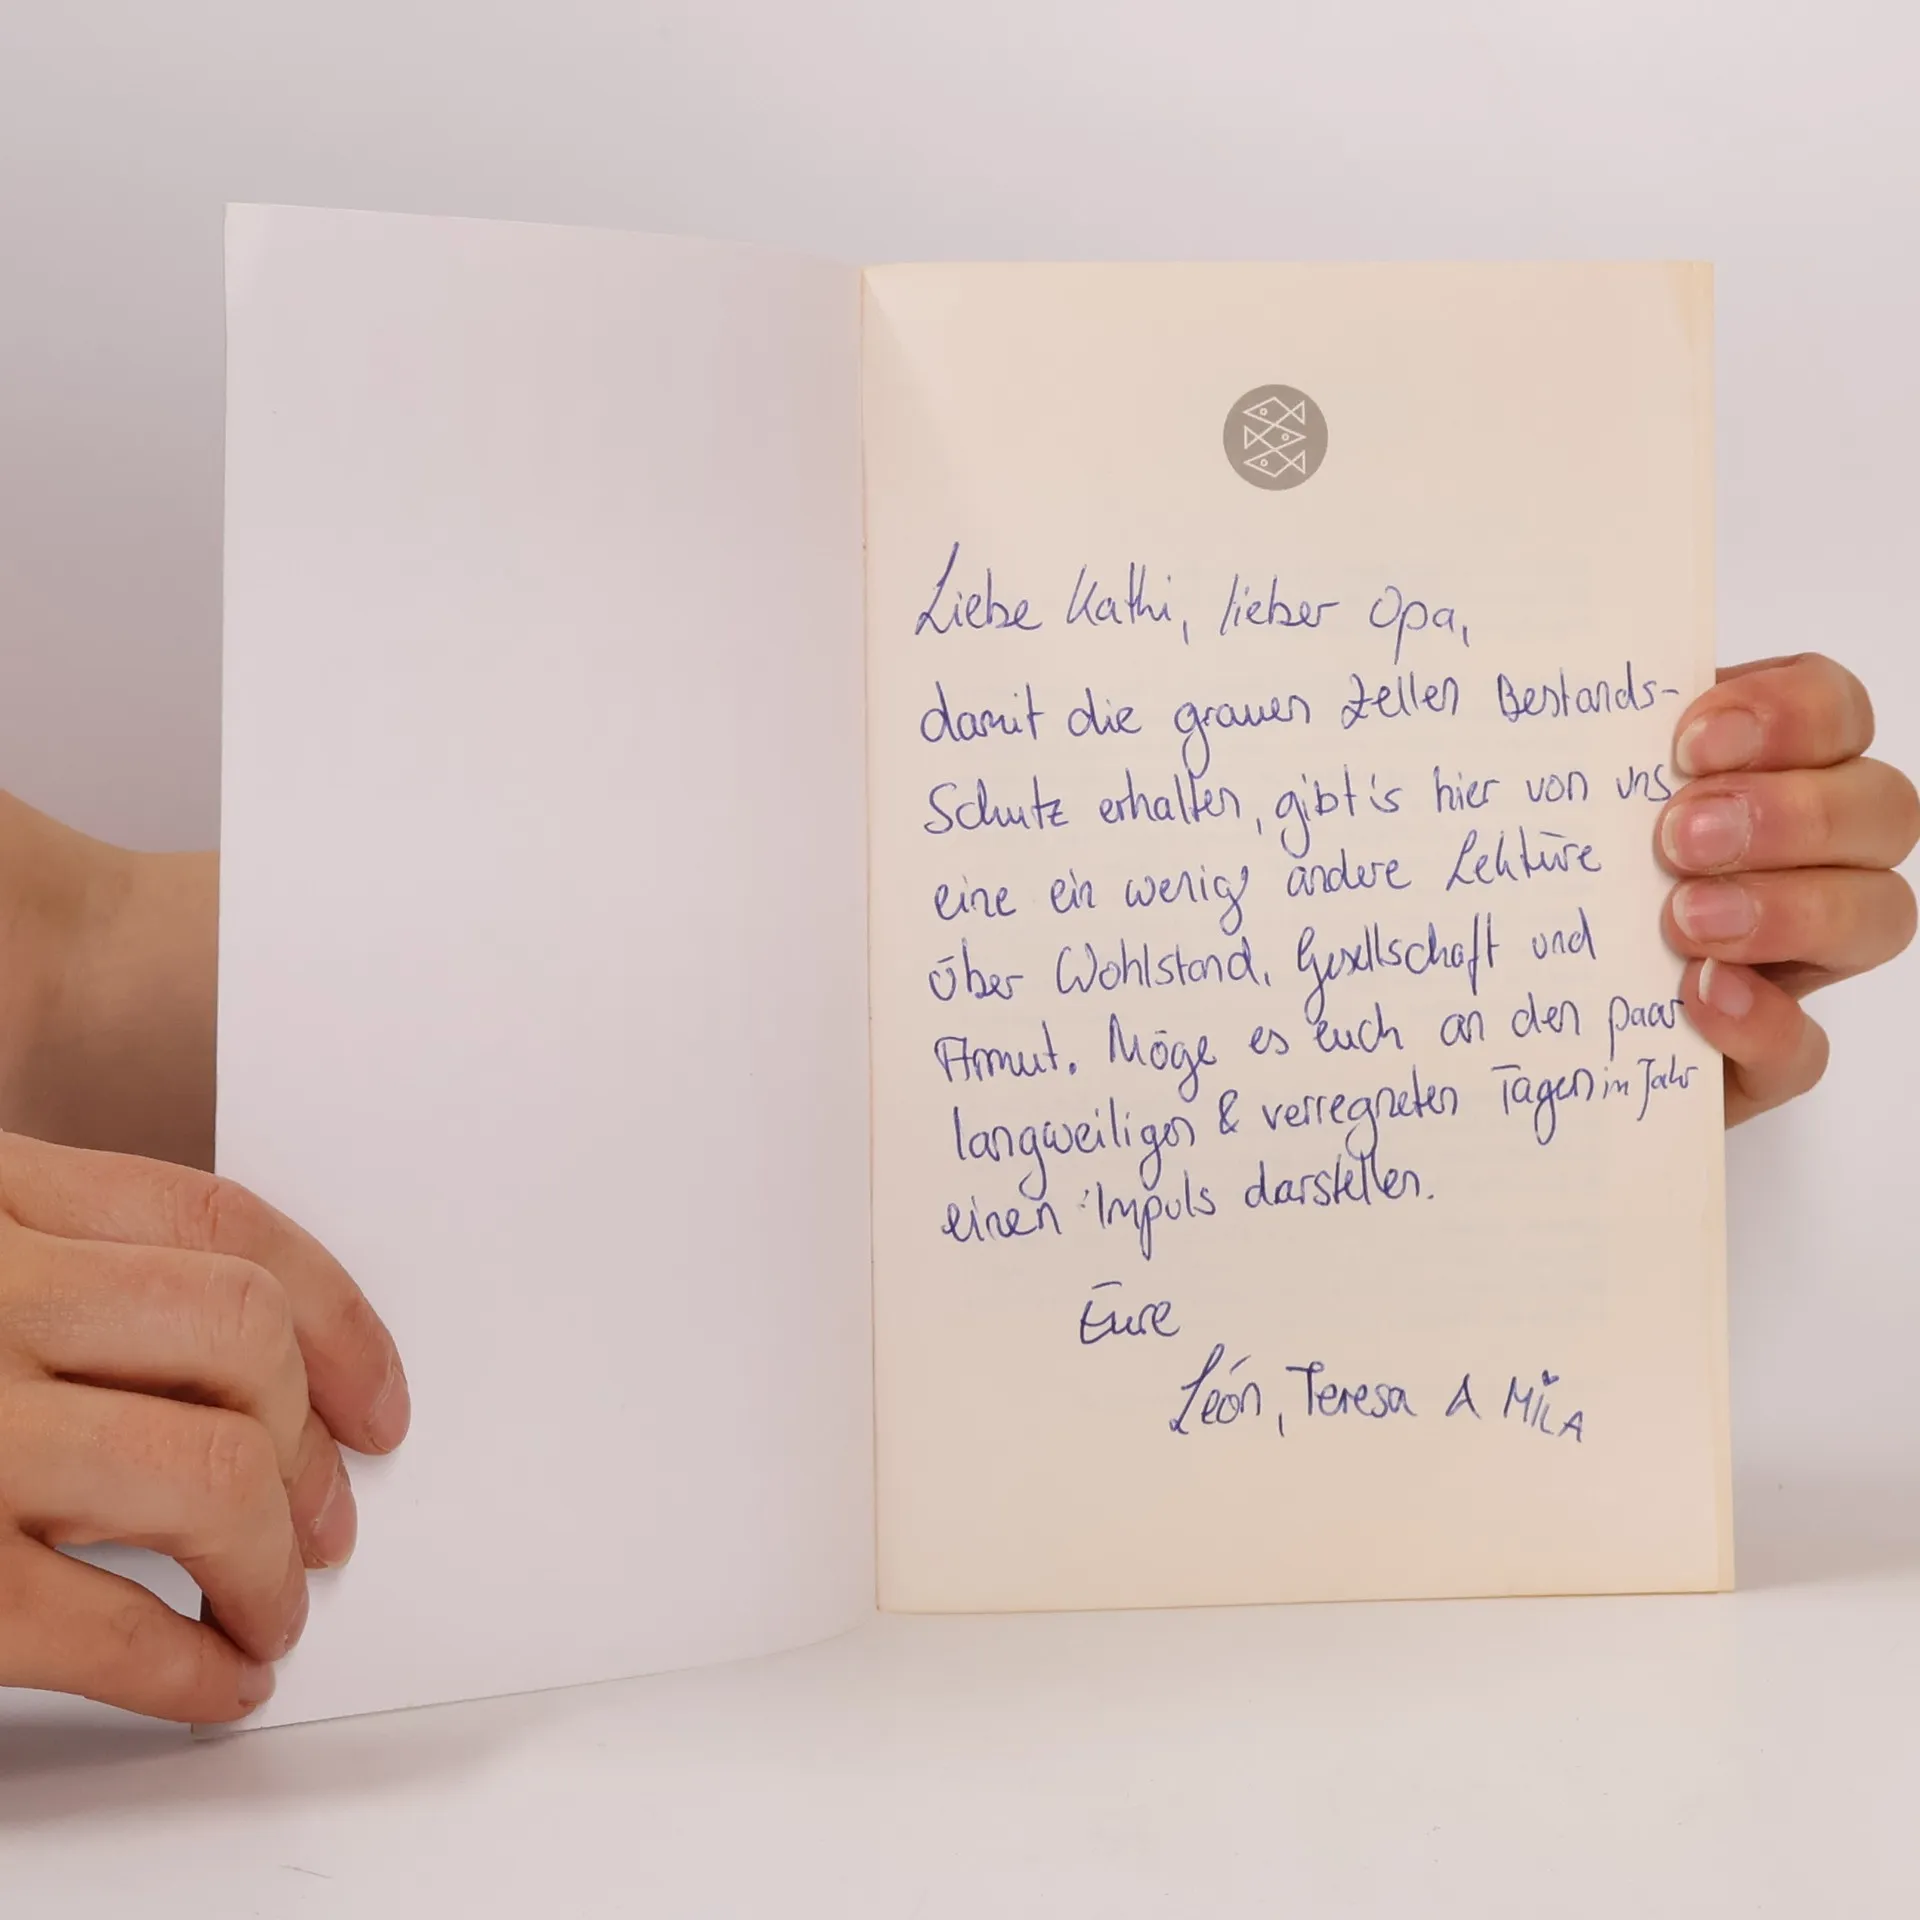 Liebe Kathi, lieber Opa,
damit die grauen Zellen Bestands-
Schutz erhalten, gibt's hier von uns
eine ein wenig andere Lektüre
über Wohlstand, Gesellschaft und
Armut. Möge es euch an den paar
langweiligen & verregneten Tagen im Jahr
einen Impuls darstellen.
Eure
León, Teresa & MiLA